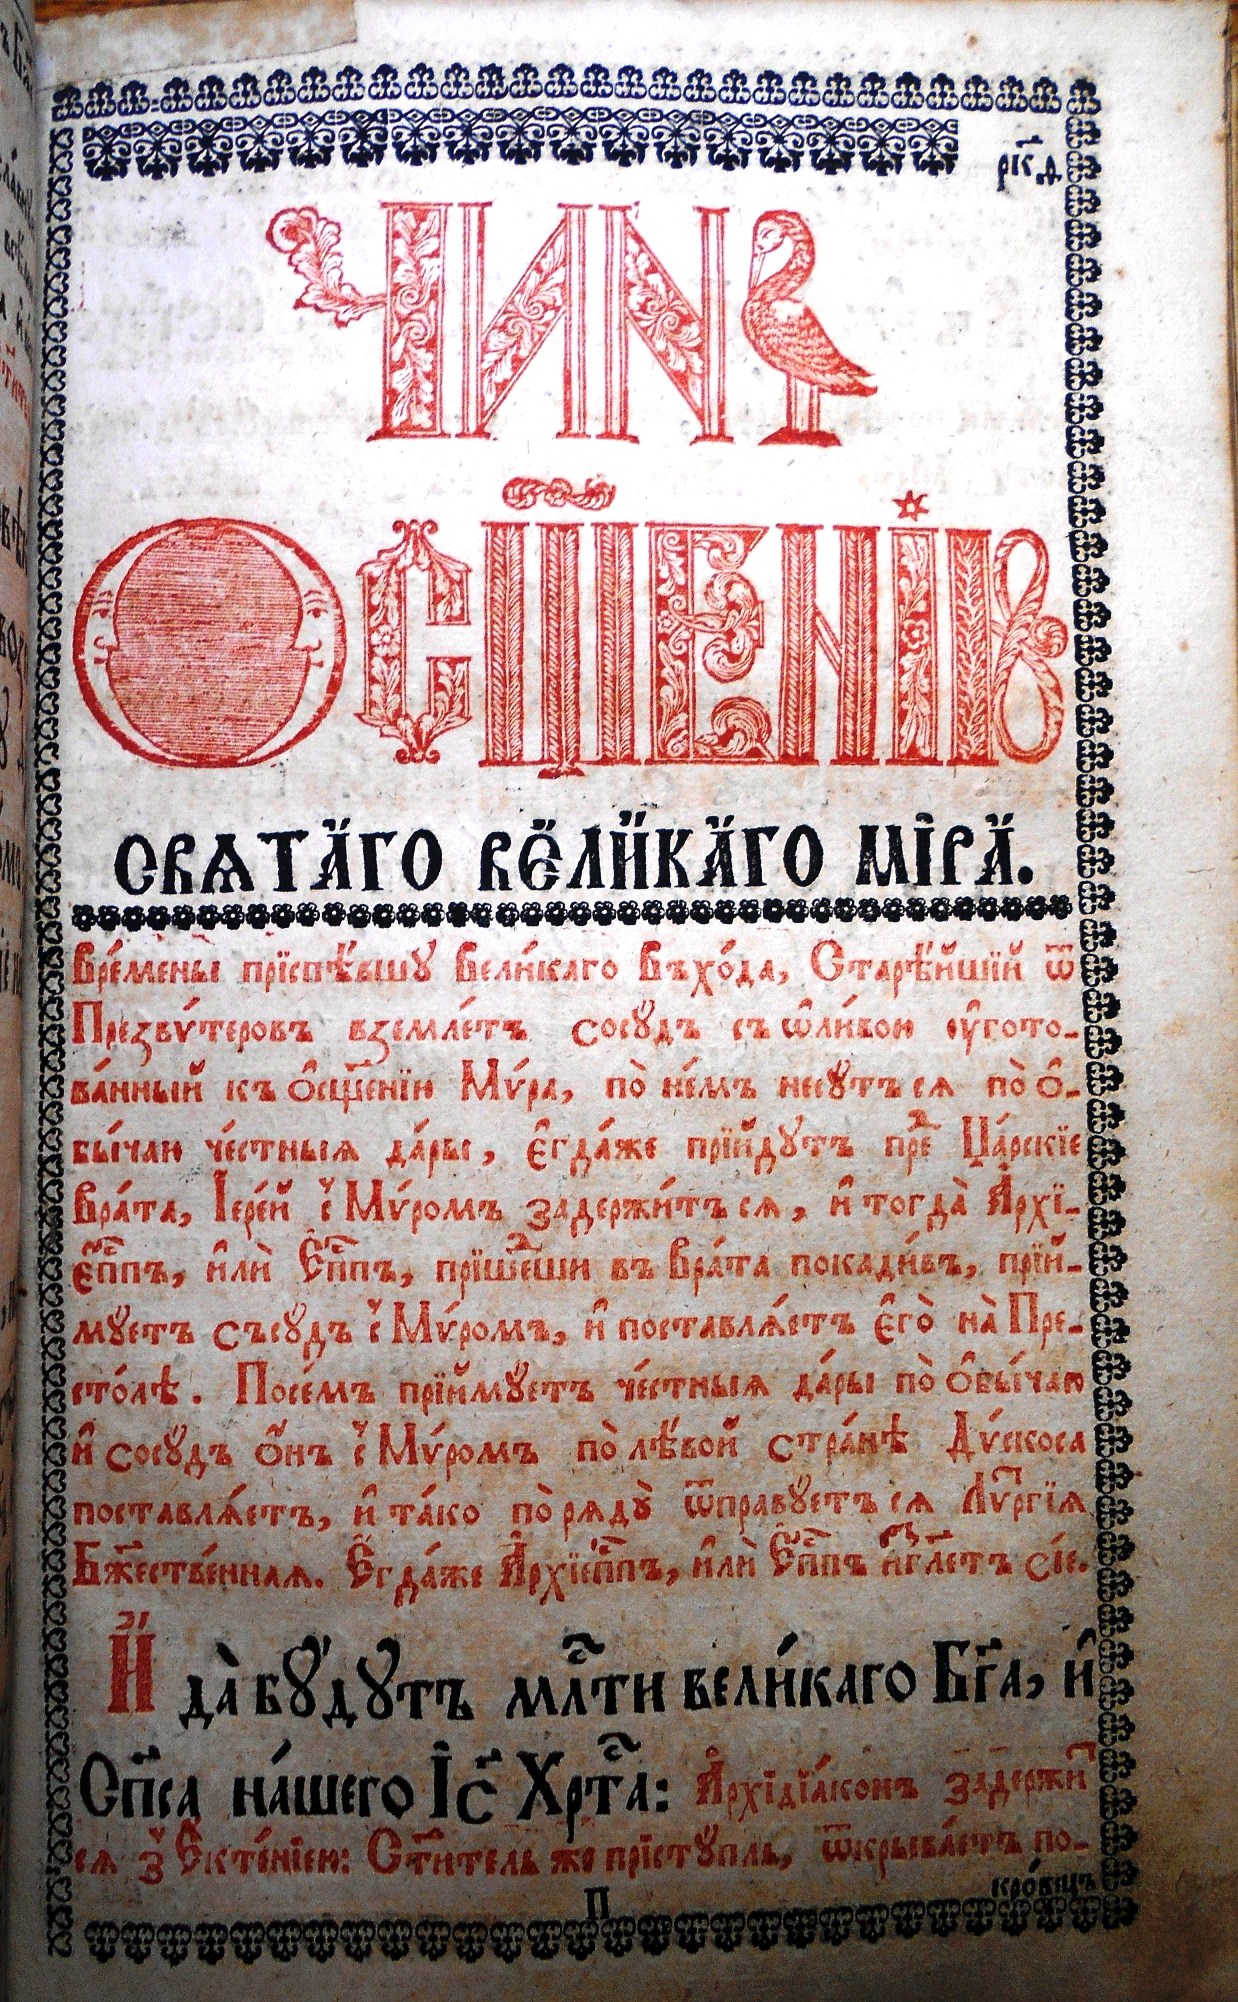 ЧИНЪ
ОСЩ҃ЕНІѦ
СВѦТА́ГО ВЕЛИ́КАГО МІ́РА.
Вре́мены прїспѣ́вшу Вели́каго Въхо́да, Старѣ́йшїй ѿ
Презвѵ́теровъ вземле́тъ сосꙋдъ съ ѡ҆ли́вою ѹ҆гото-
ва́нный къ ѻ҆сщ҃енїю Мѵ́ра, по̀ не́мъ несꙋтъ сѧ по̀ ѻ҆-
бы́чаю че́стныѧ да́ры, є҆гда́же прїи́дꙋтъ пре́ⷣ Ца́рскїе
Вра́та, І҆ере́й с̾ Мѵ́ромъ задержи́тъ сѧ, и҆ тогда̀ А҆рхї-
єп҃пъ, и҆лѝ Є҆п҃пъ, прїше́ⷣши въ Вра́та покади́въ, прїй-
мꙋетъ съсꙋдъ с̾ Мѵ́ромъ, и҆ поставлѧ́етъ є҆го̀ на̀ Пре-
сто́лѣ. Посе́мъ прїймꙋетъ че́стныѧ да́ры по̀ ѻ҆бы́чаю
и҆ сосꙋдъ ѻ҆́нъ с̾ Мѵ́ромъ по̀ лѣ́вой стра́нѣ Дѵ́скоса
поставлѧ́етъ, и҆ та́ко по̀ рѧдꙋ̀ ѿправꙋетъ сѧ Лѵⷮргїѧ
Бж҃естве́ннаѧ. Є҆гда́же А҆рхїеп҃пъ, и҆лѝ Є҆п҃пъ и҆зⷪгл҃етъ сі́е.
И҆ да̀ бꙋ́дꙋтъ млⷭ҇ти вели́каго Бг҃а, и҆
Сп҃са на́шего І҆с҃ Хрⷭ҇та: А҆рхїдїа́конъ задержиⷮ
сѧ з̾ Є҆кте́нїею: Ст҃итель же прїстꙋпль, ѿкрыва́етъ по-
П
кро́вецъ